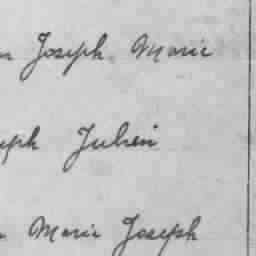 Joseph Marie
Julien
Marie Joseph